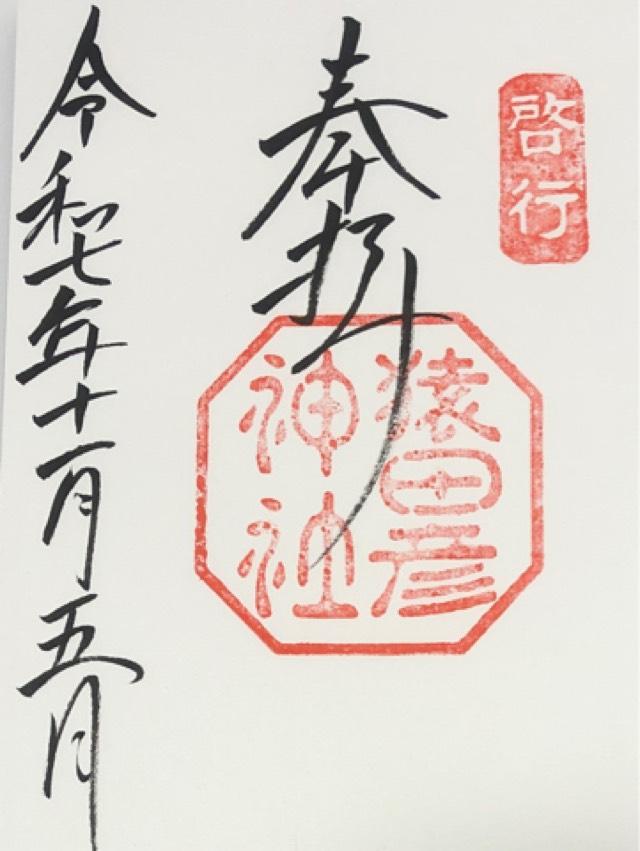 啓行
奉拝
猿田彦
神社
令和七年十一月五日